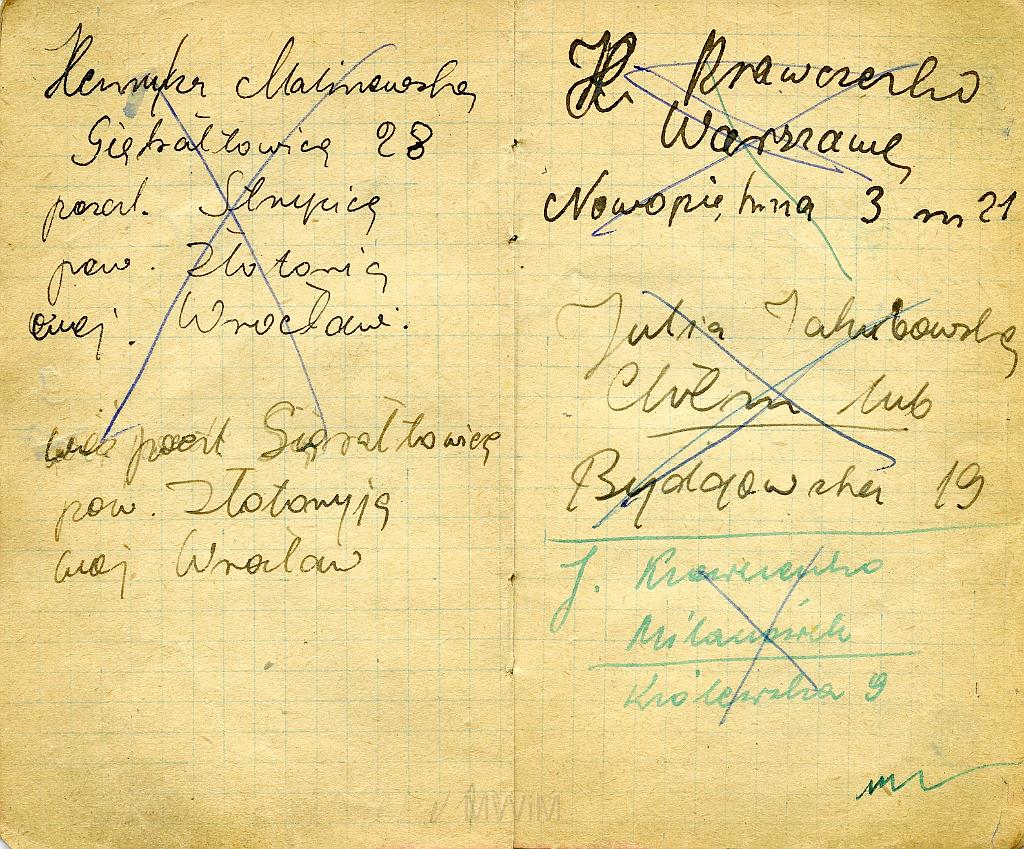 Henryka Malinowska
Giętałtowicą 28
poczt. Strupicą
pow. Złotonią
woj. Wrocław.
poczt Sięrałtowicą
pow. Złotonyją
woj. Wrocław
H. Krawczenko
Warszawa
Nowopiętnna 3 m 21
Julia Jakubowska
Chełm lub
Bydgowska 19
J. Krawczenko
Milanówek
Królewska 9
MWiM